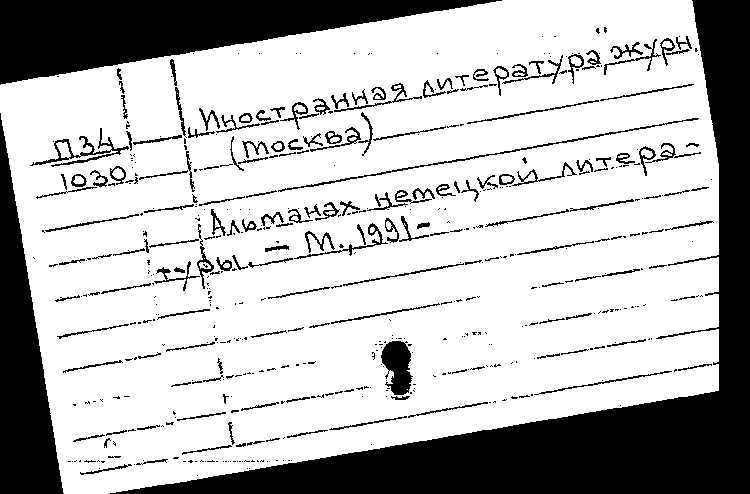 П34
1030
„Иностранная литература", журн.
(Москва)
Альманах немецкой литера-
туры. — М., 1991-